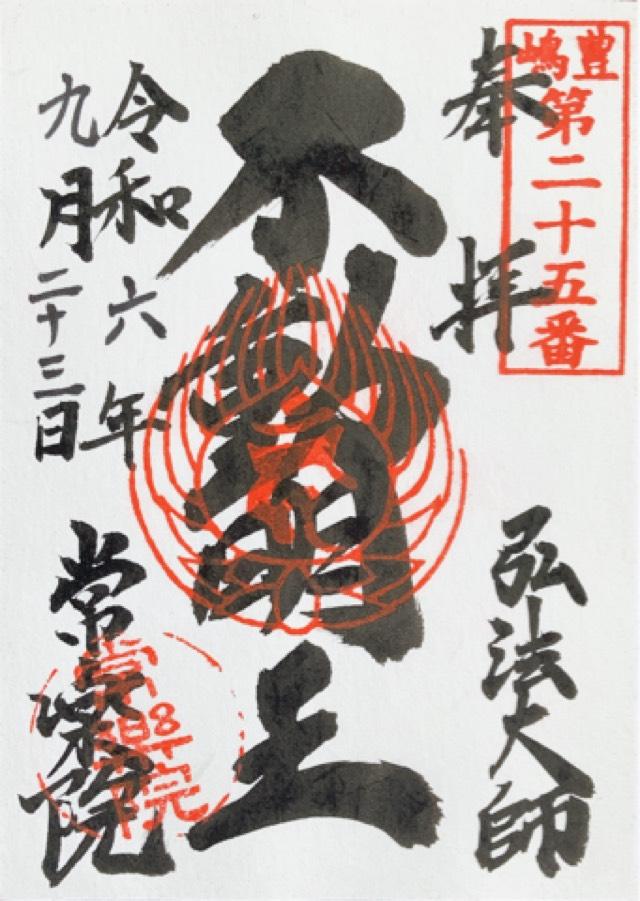 豊嶋第二十五番
奉拝
弘法大師
不動明王
令和六年
九月二十三日
常楽院
常樂院